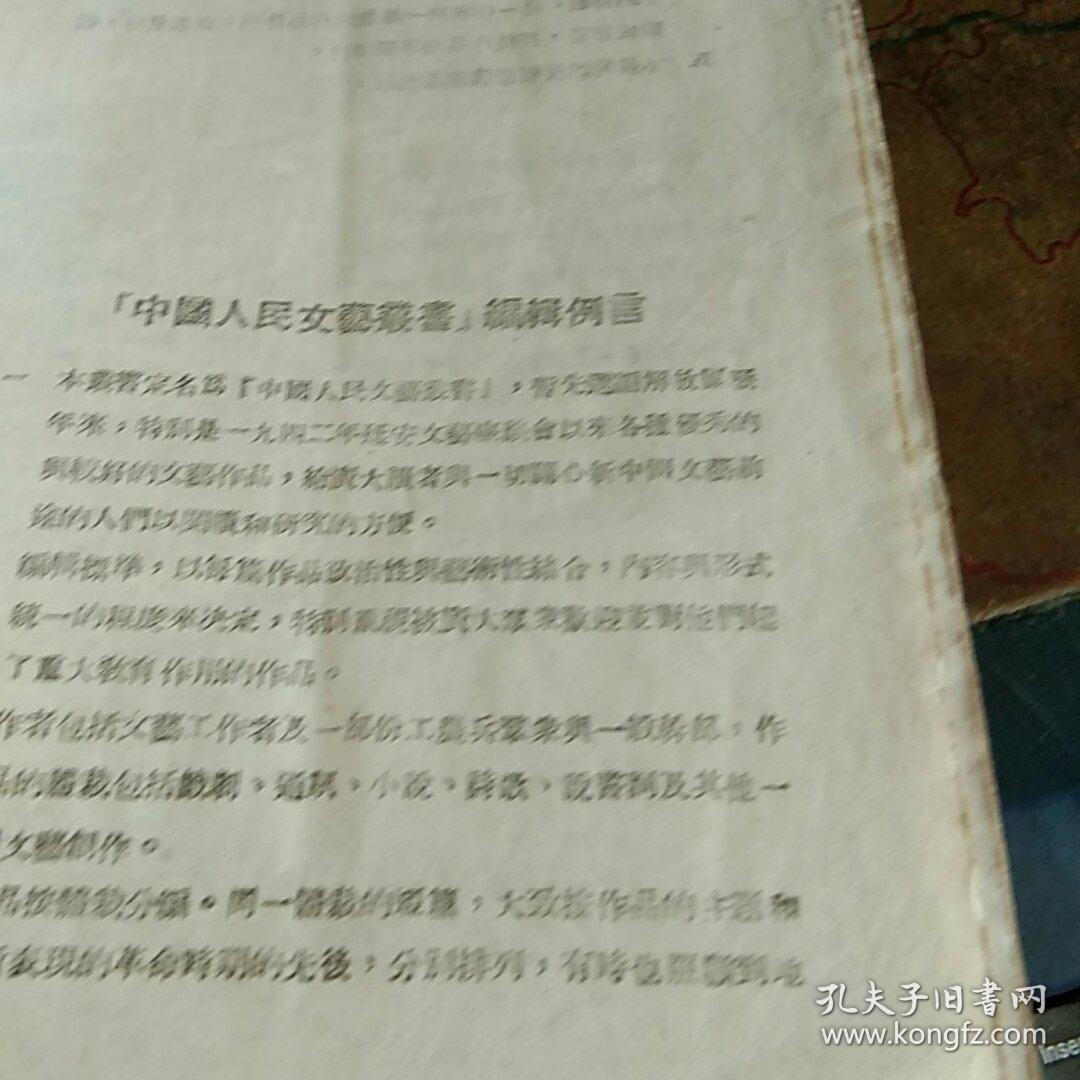 「中國人民文藝叢書」編輯例言
一 本叢書定名爲『中國人民文藝叢書』，暫先選編解放區歷
年來，特別是一九四二年延安文藝座談會以來各種優秀的
與較好的文藝作品，給廣大讀者與一切關心新中國文藝前
途的人們以閱覽和研究的方便。
編輯標準，以每篇作品政治性與藝術性結合，內容與形式
統一的程度來決定，特別重視被廣大羣衆歡迎並對他們起
了重大教育作用的作品。
作者包括文藝工作者及一部份工農兵羣衆與一般幹部，作
品的體裁包括戲劇、通訊、小說、詩歌、說書詞及其他一
文藝創作。
品按體裁分編。同一體裁的，大致按作品的主題和
所表現的革命時期的先後，分別排列，有時也照顧到地
孔夫子旧書网
www.kongfz.com
Inse